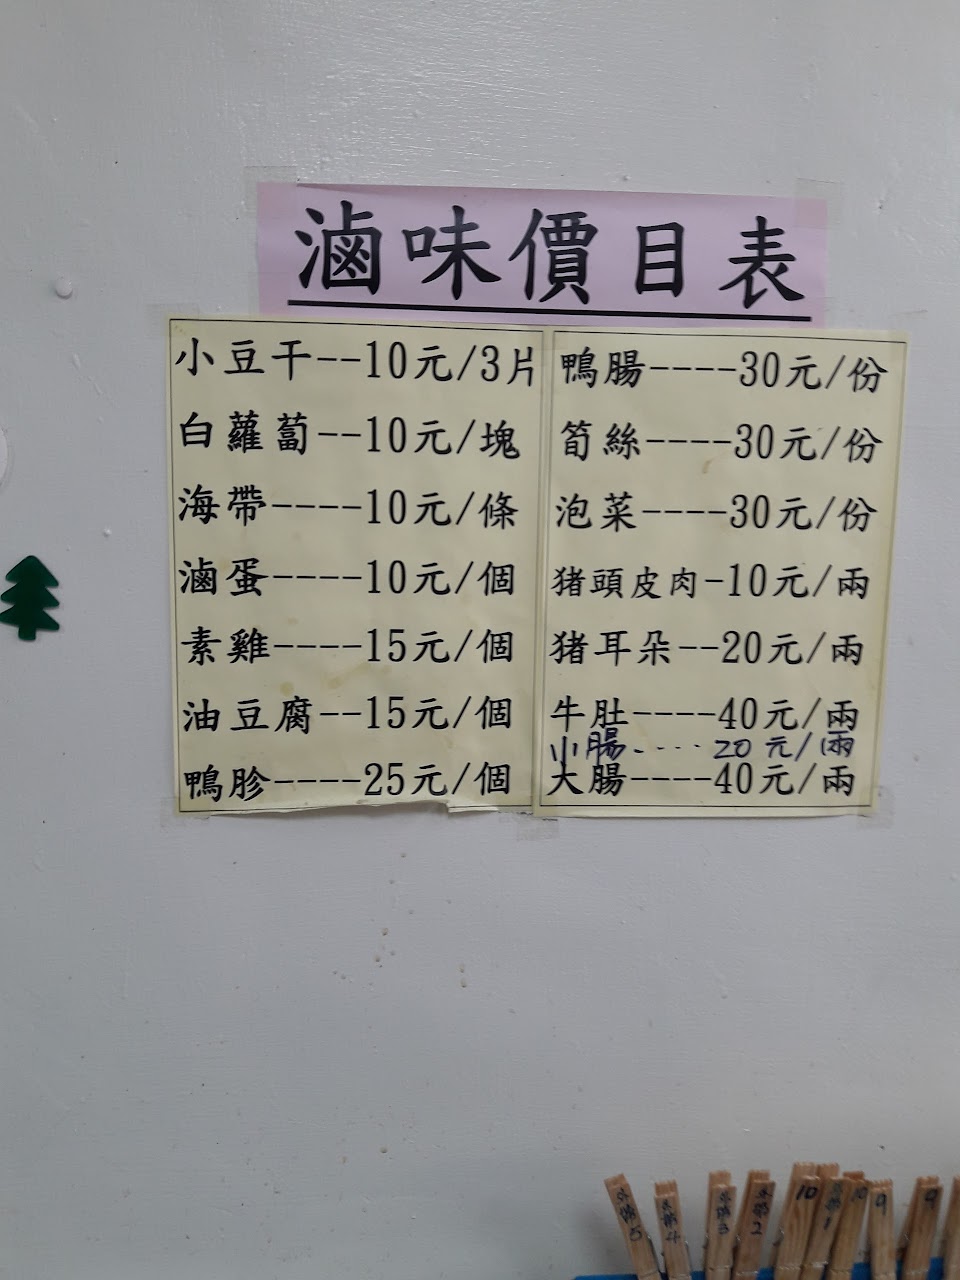 滷味價目表
小豆干--10元/3片
白蘿蔔--10元/塊
海帶----10元/條
滷蛋----10元/個
素雞----15元/個
油豆腐--15元/個
鴨胗----25元/個
鴨腸----30元/份
筍絲----30元/份
泡菜----30元/份
猪頭皮肉-10元/兩
猪耳朵--20元/兩
牛肚----40元/兩
小腸.····20元/兩
大腸----40元/兩
外帶5
外帶4
外帶3
外帶2
10
外帶1
10
9
9